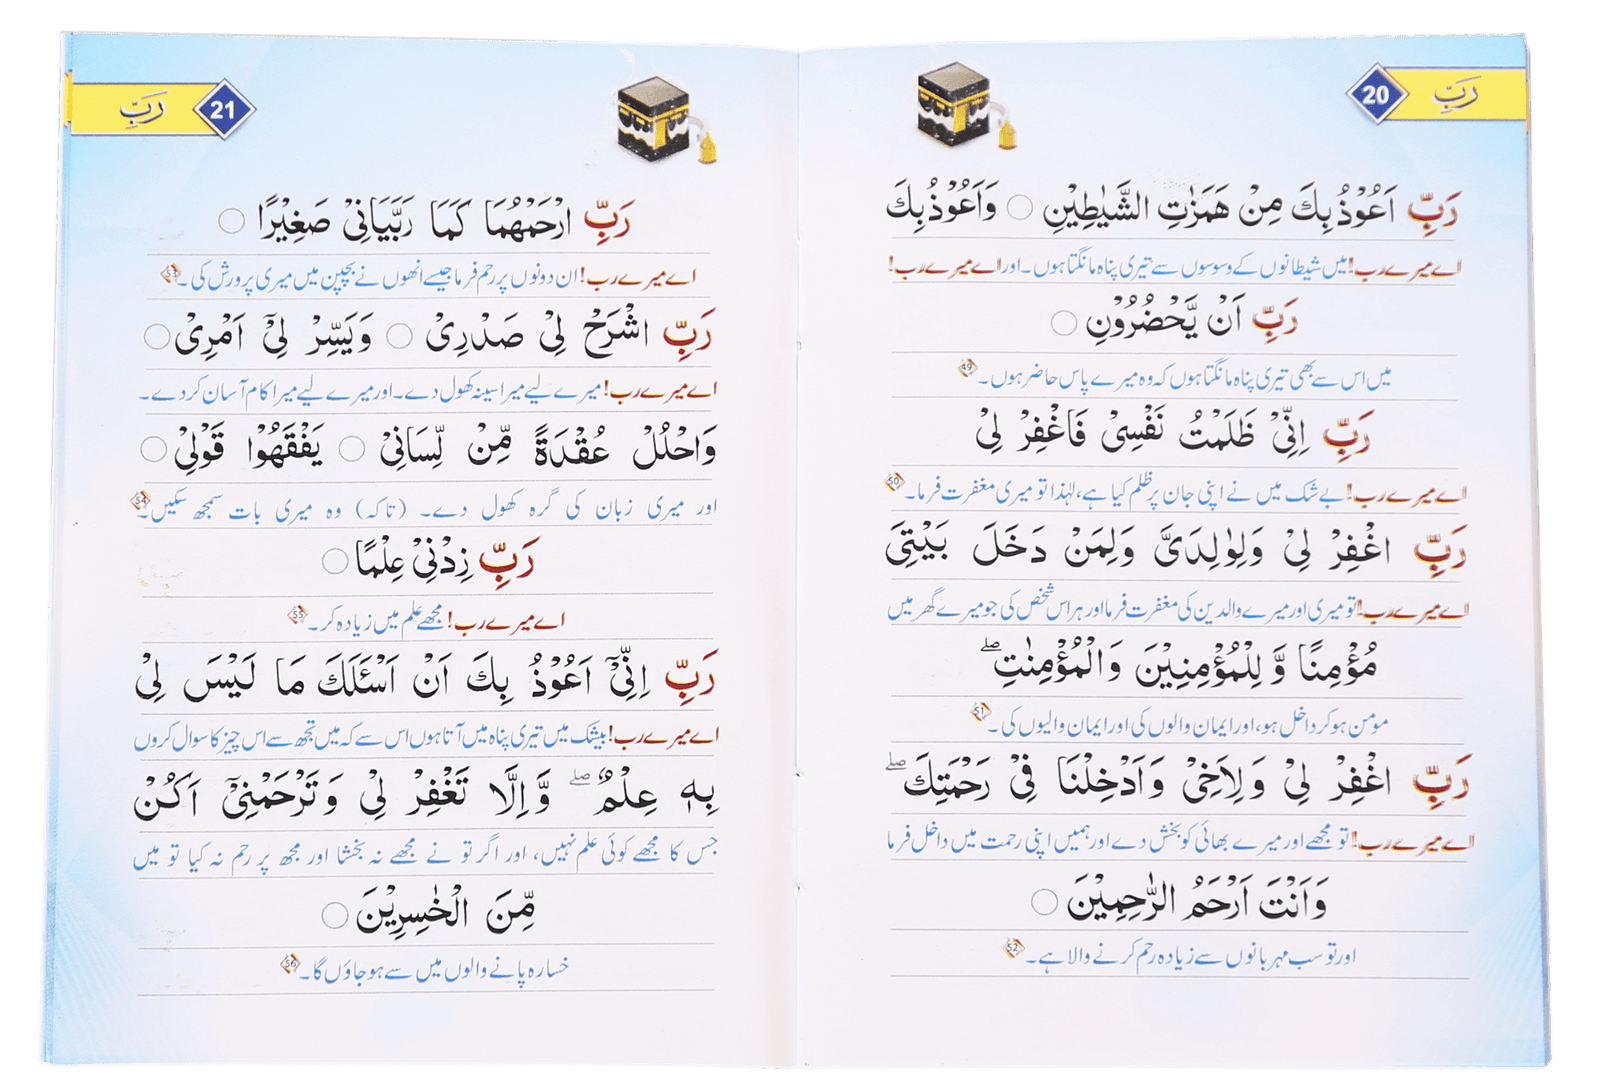 رَبِّ 20
رَبِّ اَعُوْذُ بِكَ مِنْ هَمَزٰتِ الشَّيٰطِيْنِ ○ وَاَعُوْذُ بِكَ
اے میرے رب! میں شیطانوں کے وسوسوں سے تیری پناہ مانگتا ہوں۔ اور اے میرے رب!
رَبِّ اَنْ يَّحْضُرُوْنِ ○
میں اس سے بھی تیری پناہ مانگتا ہوں کہ وہ میرے پاس حاضر ہوں۔ 49
رَبِّ اِنِّيْ ظَلَمْتُ نَفْسِيْ فَاغْفِرْ لِيْ
اے میرے رب! بے شک میں نے اپنی جان پر ظلم کیا ہے، لہٰذا تو میری مغفرت فرما۔ 50
رَبِّ اغْفِرْ لِيْ وَلِوَالِدَيَّ وَلِمَنْ دَخَلَ بَيْتِيَ
اے میرے رب! تو میری اور میرے والدین کی مغفرت فرما اور ہر اس شخص کی جو میرے گھر میں
مُؤْمِنًا وَّ لِلْمُؤْمِنِيْنَ وَالْمُؤْمِنٰتِ ۖ
مومن ہو کر داخل ہو، اور ایمان والوں کی اور ایمان والیوں کی۔ 51
رَبِّ اغْفِرْ لِيْ وَلِاَخِيْ وَاَدْخِلْنَا فِيْ رَحْمَتِكَ ۖ
اے میرے رب! تو مجھے اور میرے بھائی کو بخش دے اور ہمیں اپنی رحمت میں داخل فرما
وَاَنْتَ اَرْحَمُ الرّٰحِمِيْنَ ○
اور تو سب مہربانوں سے زیادہ رحم کرنے والا ہے۔ 52
رَبِّ 21
رَبِّ ارْحَمْهُمَا كَمَا رَبَّيَانِيْ صَغِيْرًا ○
اے میرے رب! ان دونوں پر رحم فرما جیسے انھوں نے بچپن میں میری پرورش کی۔ 53
رَبِّ اشْرَحْ لِيْ صَدْرِيْ ○ وَيَسِّرْ لِيْٓ اَمْرِيْ ○
اے میرے رب! میرے لیے میرا سینہ کھول دے۔ اور میرے لیے میرا کام آسان کر دے۔
وَاحْلُلْ عُقْدَةً مِّنْ لِّسَانِيْ ○ يَفْقَهُوْا قَوْلِيْ ○
اور میری زبان کی گرہ کھول دے۔ (تاکہ) وہ میری بات سمجھ سکیں۔ 54
رَبِّ زِدْنِيْ عِلْمًا ○
اے میرے رب! مجھے علم میں زیادہ کر۔ 55
رَبِّ اِنِّيْٓ اَعُوْذُ بِكَ اَنْ اَسْـَٔلَكَ مَا لَيْسَ لِيْ
اے میرے رب! بیشک میں تیری پناہ میں آتا ہوں اس سے کہ میں تجھ سے اس چیز کا سوال کروں
بِهٖ عِلْمٌ ۖ وَّاِلَّا تَغْفِرْ لِيْ وَتَرْحَمْنِيْٓ اَكُنْ
جس کا مجھے کوئی علم نہیں، اور اگر تو نے مجھے نہ بخشا اور مجھ پر رحم نہ کیا تو میں
مِّنَ الْخٰسِرِيْنَ ○
خسارہ پانے والوں میں سے ہو جاؤں گا۔ 56